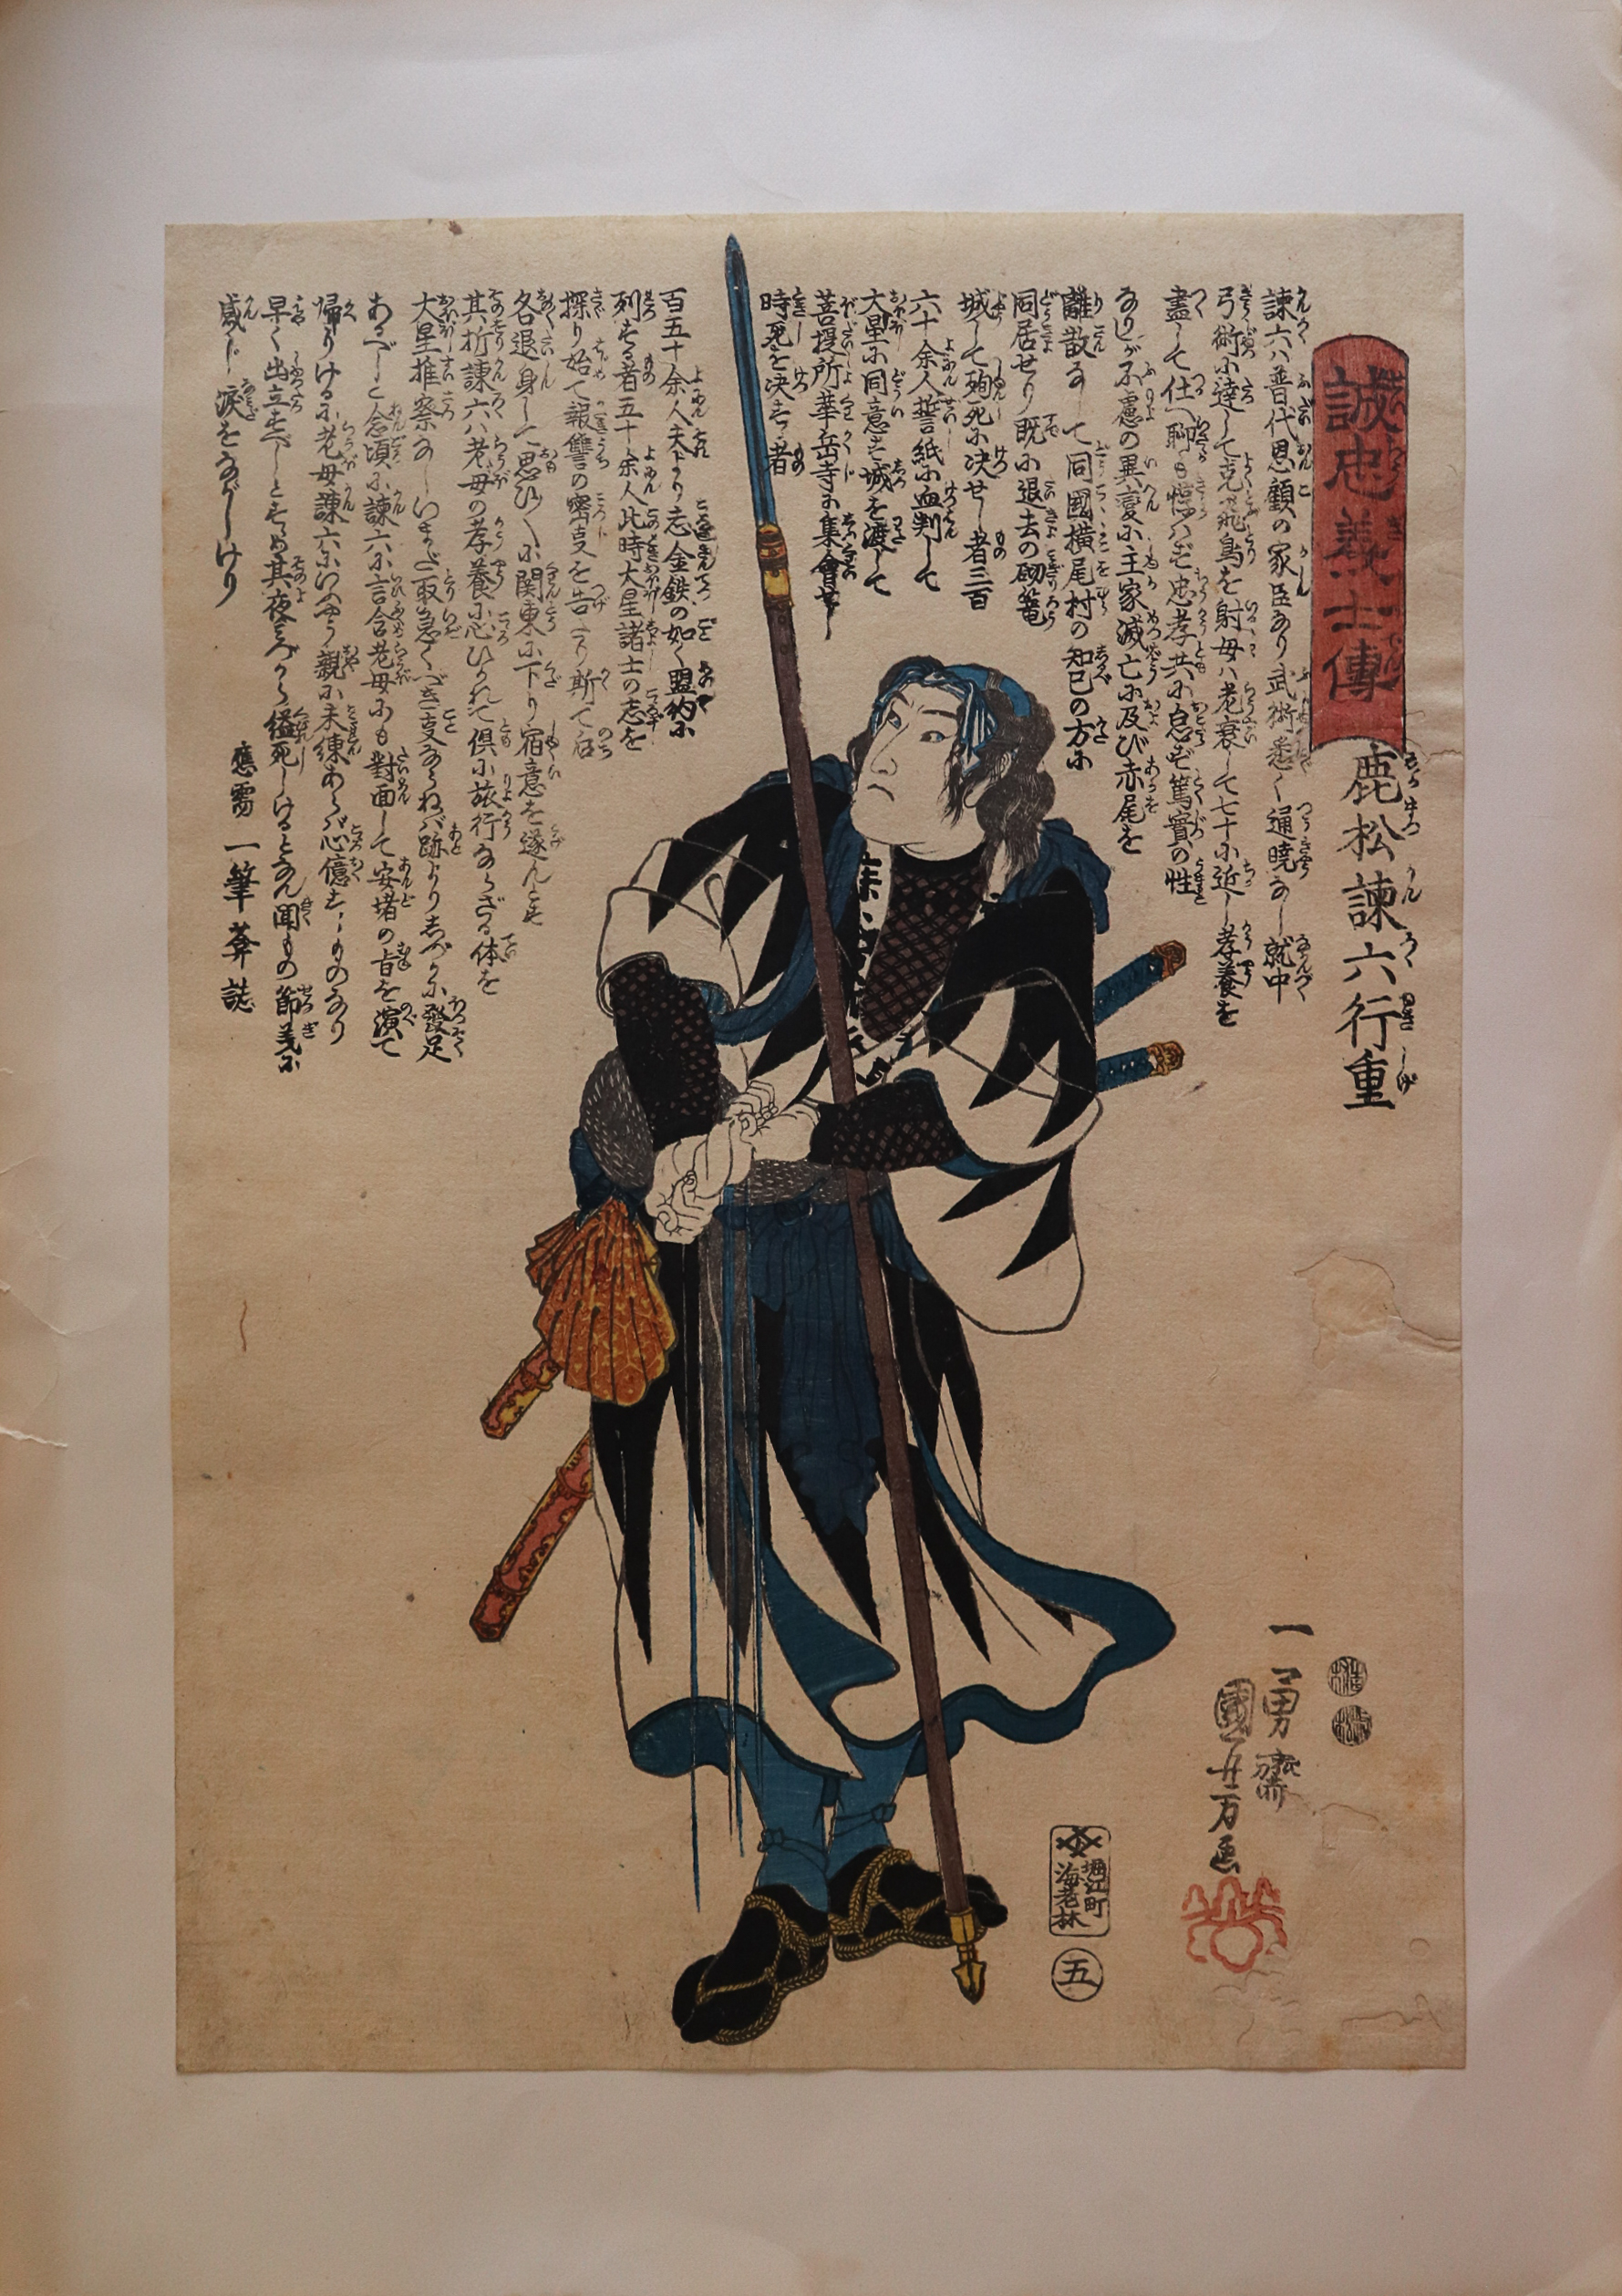 誠忠義士傳
鹿松諫六行重
諫六ハ普代恩顧の家臣なり武術悉く通暁なし就中
弓術に達して克飛鳥を射母ハ老衰して七十に近し孝養を
盡して仕へ聊も惰らず忠孝共に怠ず篤實の性
なりしが不慮の異変に主家滅亡に及び赤尾を
離散なして同國横尾村の知己の方に
同居せり既に退去の砌篭
城して殉死に决せし者三百
六十余人誓紙に血判して
大星に同意を城を渡して
菩提所華岳寺に集會し
時死を决する者
百五十余人夫より志金鉄の如く盟約に
列する者五十余人此時大星諸士の志を
探り始て報讐の密事を告たり斯て后
各退身して思ひ〳〵に関東に下り宿意を遂んとす
其折諫六ハ老母の孝養に心ひかれて倶に旅行ならざる体を
大星推察なしいまだ取急くべき事ならねバ跡よりしづかに發足
あるべしと念頃に諫六に言含老母にも對面して安堵の旨を演て
帰りけるに老母諫六にいへやう親に未練あらバ心億するものなり
早く出立すべしとすゝめ其夜みづから縊死しけるとなん聞もの節義に
感じ涙をながしけり
應需 一筆菴誌
一勇齋
國芳画
堀江町
海老林
五